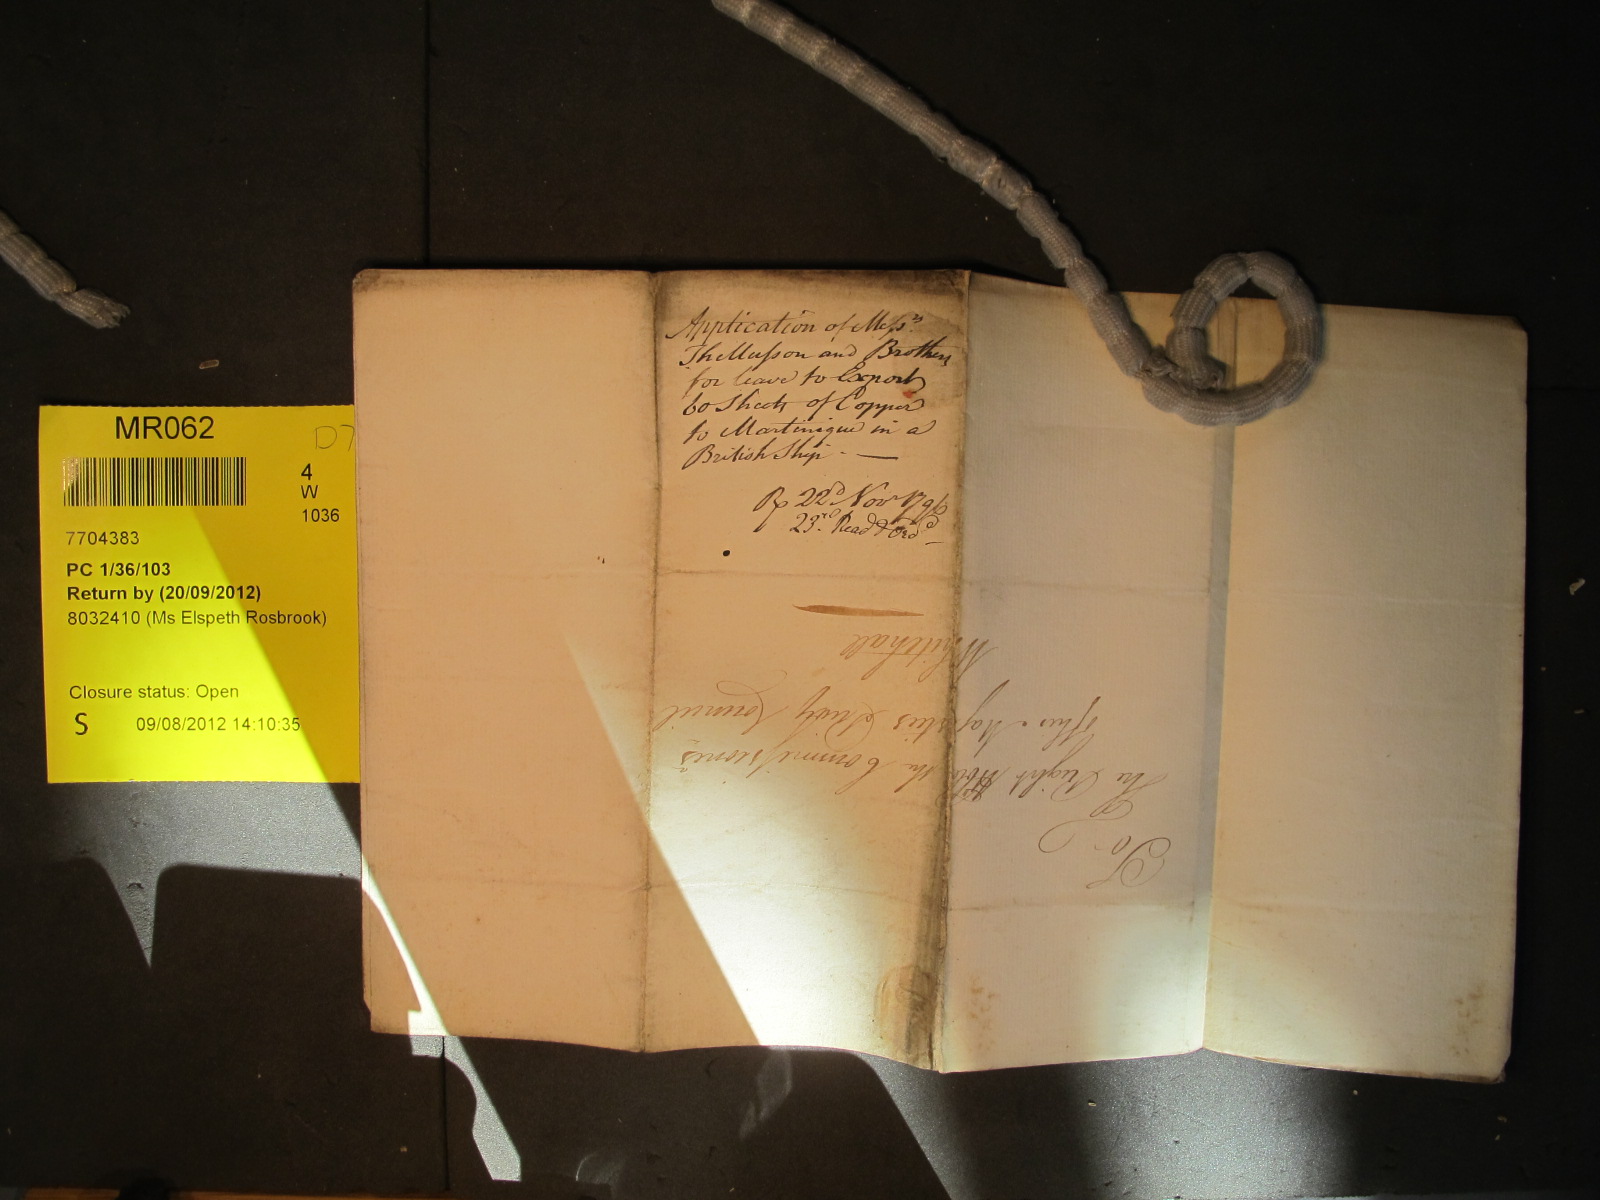 MR062
D7
4
W
1036
7704383
PC 1/36/103
Return by (20/09/2012)
8032410 (Ms Elspeth Rosbrook)
Closure status: Open
S 09/08/2012 14:10:35
Application of Messrs
Thellusson and Brothers
for leave to Export
60 Sheets of Copper
to Martinique in a
British Ship. —
22d Nov
23rd. Read & Ord
To
The Right Hon the Commissioners
His Majesties Privy Council
Whitehall